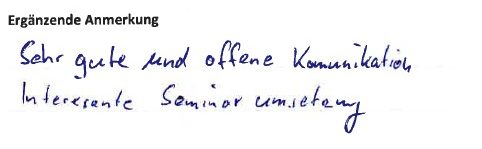 Ergänzende Anmerkung
Sehr gute und offene Komunikation
Interesante Seminar umsetzung